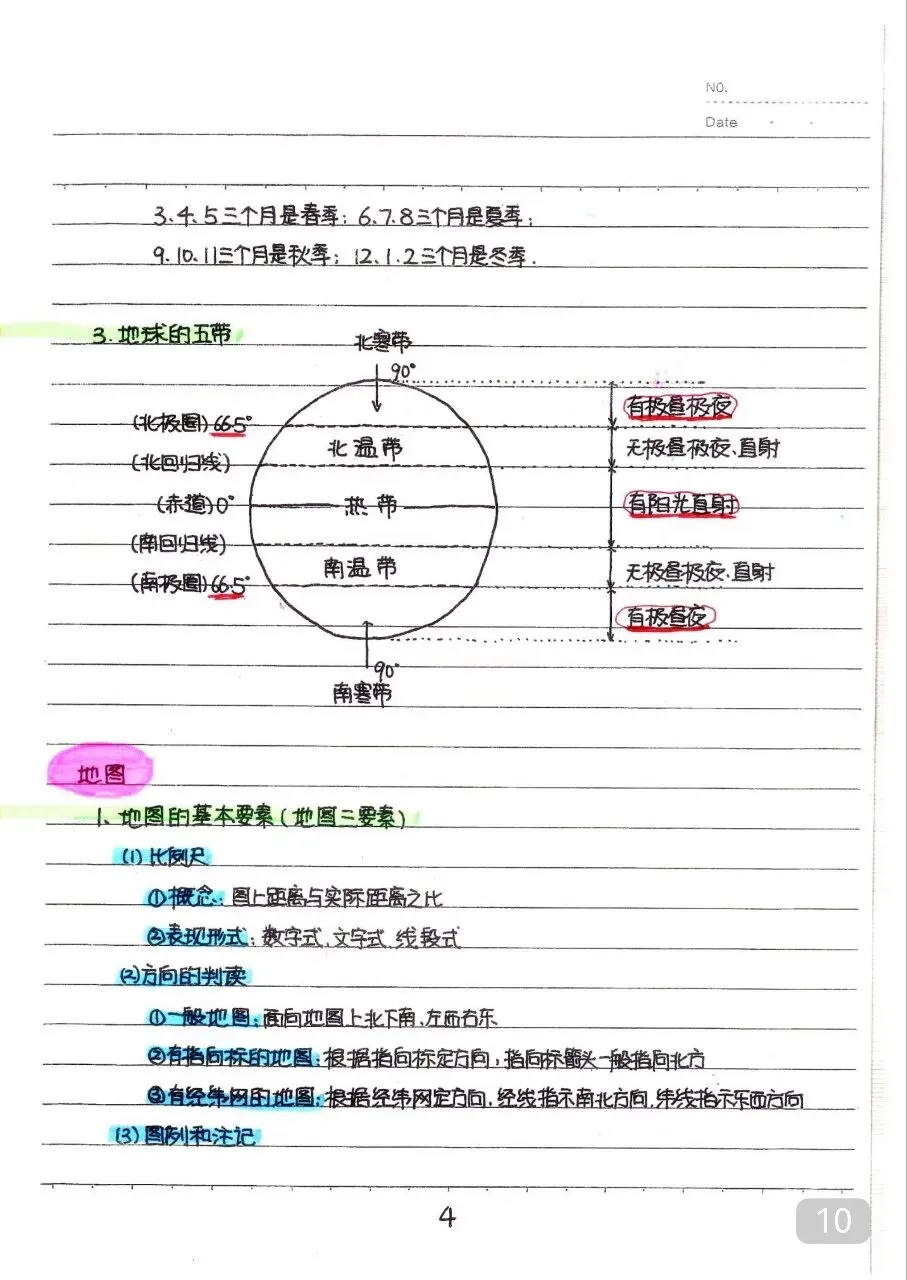 NO.
Date
3.4.5三个月是春季; 6.7.8三个月是夏季;
9.10.11三个月是秋季; 12.1.2三个月是冬季.
3.地球的五带
北寒带
90°
(北极圈)66.5° 有极昼极夜
北温带 无极昼极夜、直射
(北回归线)
(赤道)0° 热带 有阳光直射
(南回归线)
南温带 无极昼极夜、直射
(南极圈)66.5°
有极昼夜
90°
南寒带
地图
1、地图的基本要素(地图三要素)
(1)比例尺
①概念:图上距离与实际距离之比
②表现形式:数字式、文字式、线段式
(2)方向的判读
①一般地图:面向地图上北下南、左西右东
②有指向标的地图:根据指向标定方向,指向标箭头一般指向北方
③有经纬网的地图:根据经纬网定方向,经线指示南北方向,纬线指示东西方向
(3)图例和注记
4
10